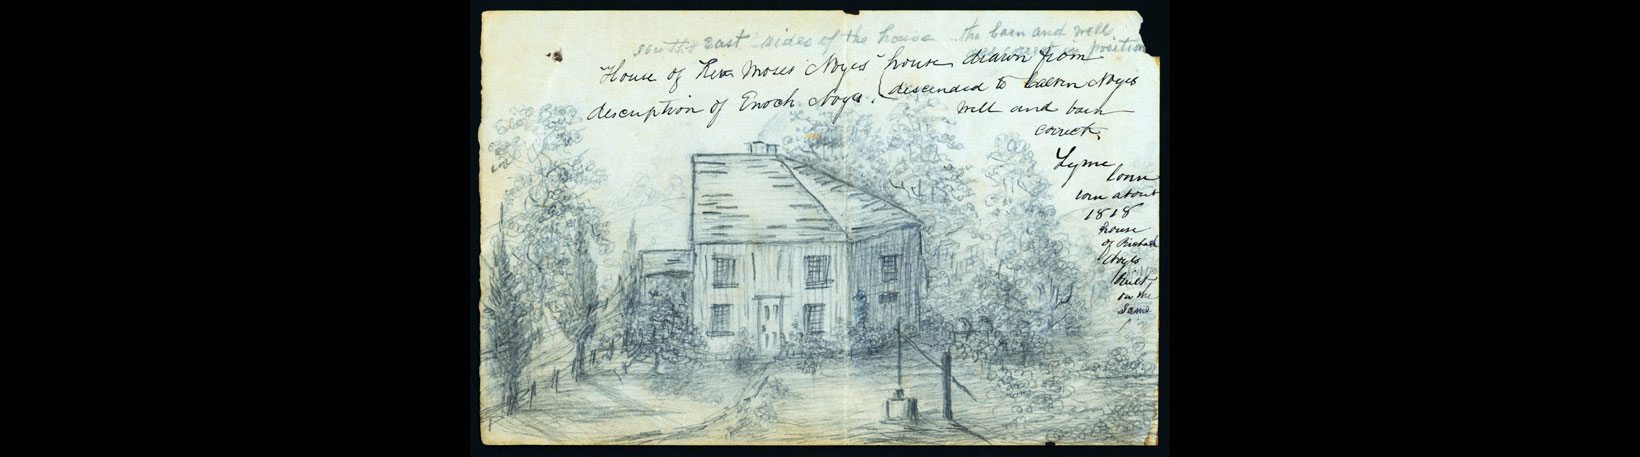 south & east sides of the house the barn and well
are correct in position
House of Rev Moses Noyes house drawn from
description of Enoch Noyes. (descended to Calvin Noyes
well and barn
correct.
Lyme
Conn
about
1818
house
of Richard
Noyes
built
on the
same